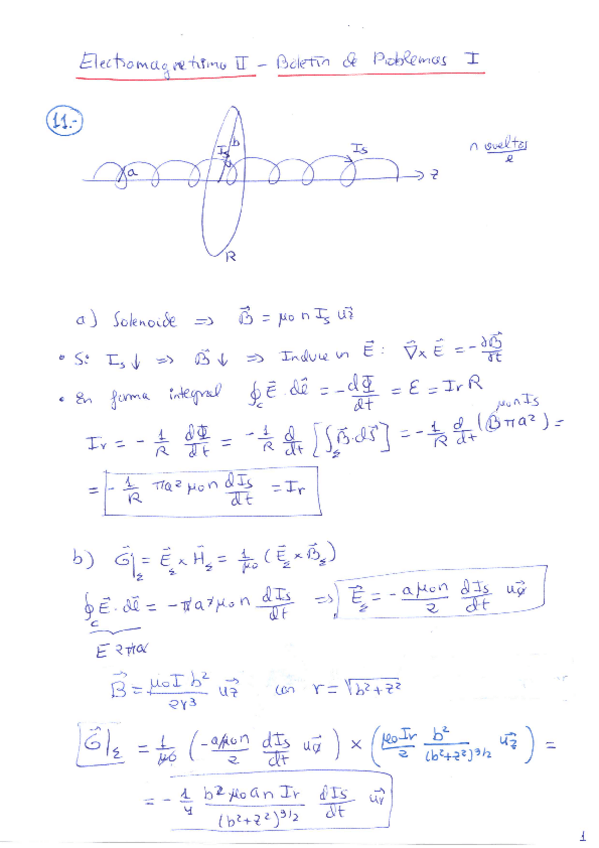 Electromagnetismo II - Boletín de Problemas I
11.-
a
Is
b
Is
z
R
n vueltas/e
a) Solenoide => B⃗ = μ₀ n Is u⃗z
• Si Is↓ => B⃗↓ => Induce un E⃗: ∇⃗ x E⃗ = -∂B⃗/∂t
• En forma integral ∮c E⃗·dℓ⃗ = -dΦ/dt = ε = Ir R
Ir = -1/R dΦ/dt = -1/R d/dt [∫Σ B⃗·dS⃗] = -1/R d/dt (B π a²) =
μ₀ n Is
= -1/R πa² μ₀ n dIs/dt = Ir
b) G⃗]Σ = E⃗Σ x H⃗Σ = 1/μ₀ (E⃗Σ x B⃗Σ)
∮c E⃗·dℓ⃗ = -πa² μ₀ n dIs/dt => E⃗Σ = -aμ₀n/2 dIs/dt u⃗φ
E 2πa
B⃗ = μ₀ I b²/2r³ u⃗z con r = √(b²+z²)
G⃗]Σ = 1/μ₀ (-aμ₀n/2 dIs/dt u⃗φ) x (μ₀ Ir/2 b²/(b²+z²)^3/2 u⃗z) =
= -1/4 b² μ₀ a n Ir/(b²+z²)^3/2 dIs/dt u⃗r
1